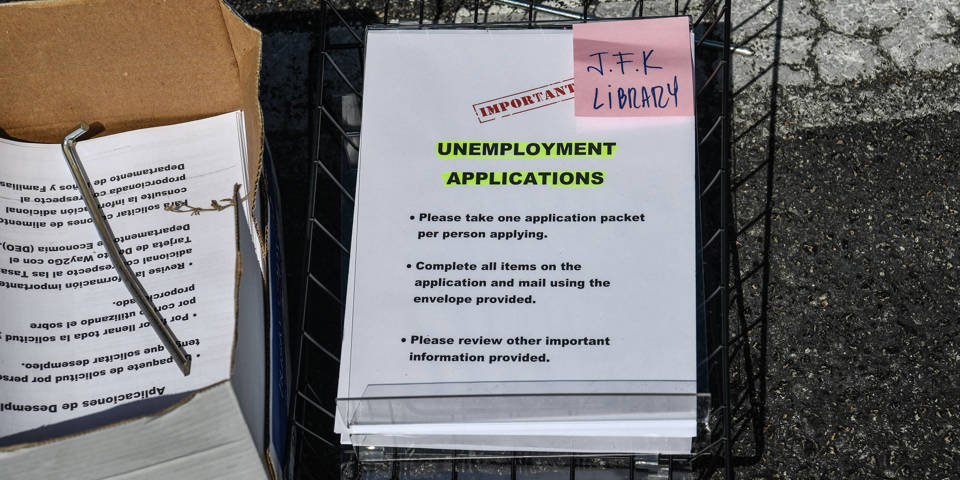 IMPORTANT
J.F.K
LIBRARY
UNEMPLOYMENT
APPLICATIONS
• Please take one application packet
per person applying.
• Complete all items on the
application and mail using the
envelope provided.
• Please review other important
information provided.
Aplicaciones de Desempl
paquete de solicitud por perso
que solicitar desempleo.
• Por favor llenar toda la solicitud y
por correo utilizando el sobre
proporcionado.
• Revise la información importante
adicional con respecto al las Tasa
Tarjeta de Débito Way2Go con el
Departamento de Economía (DEO).
Para solicitar cupones de alimento
consulte la información adicional
proporcionada con respecto al
Departamento de Niños y Familias